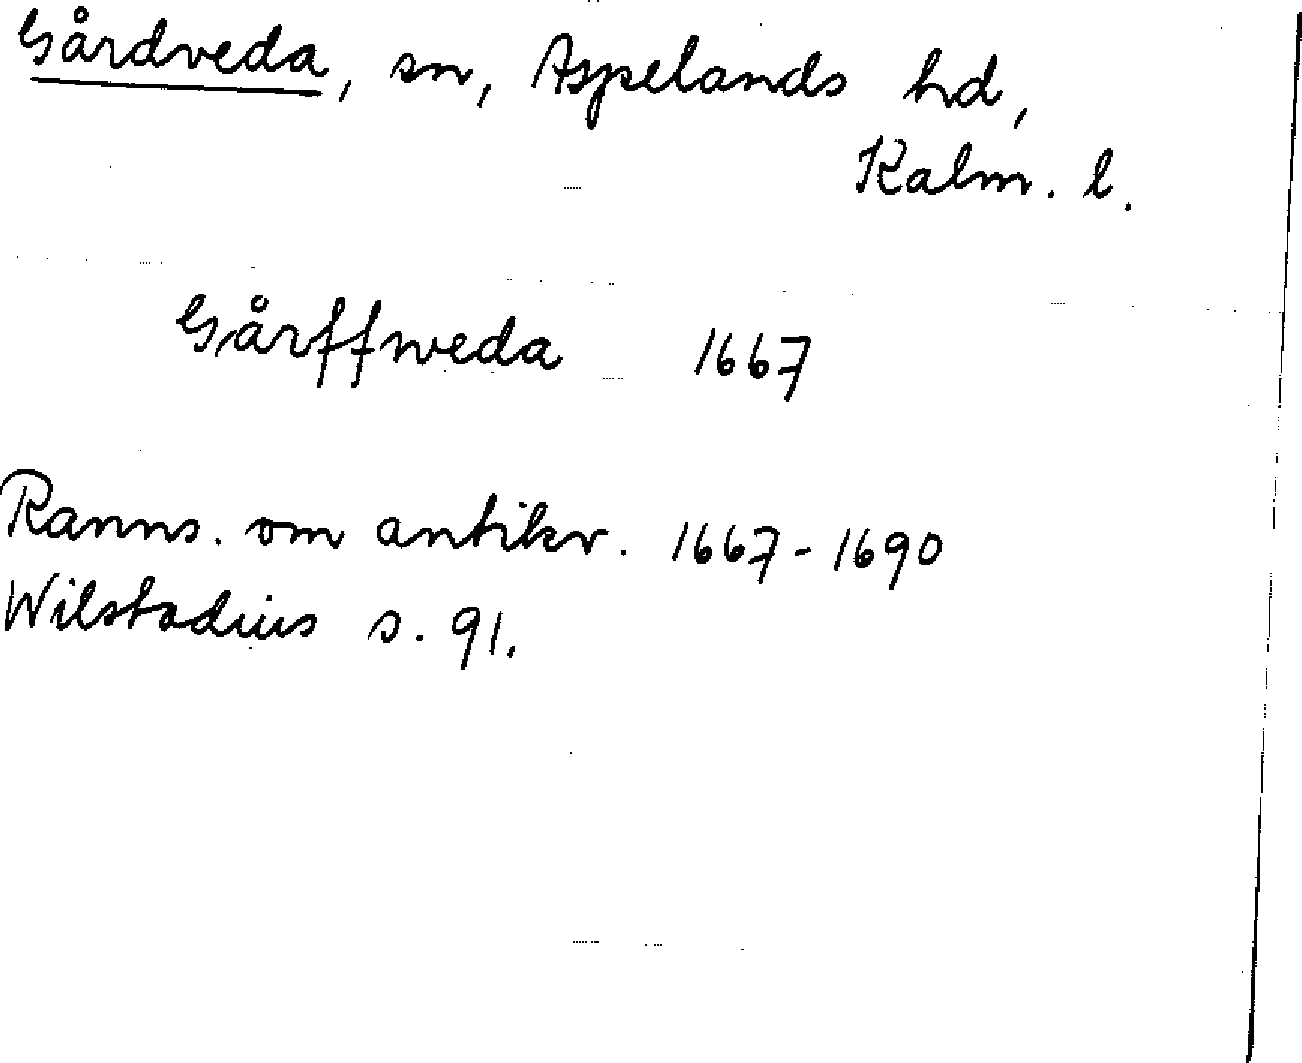 Gårdveda, sn, Aspelands hd,
Kalm. l.
Gårffweda 1667
Ranns. om antikv. 1667-1690
Wilstadius s. 91.